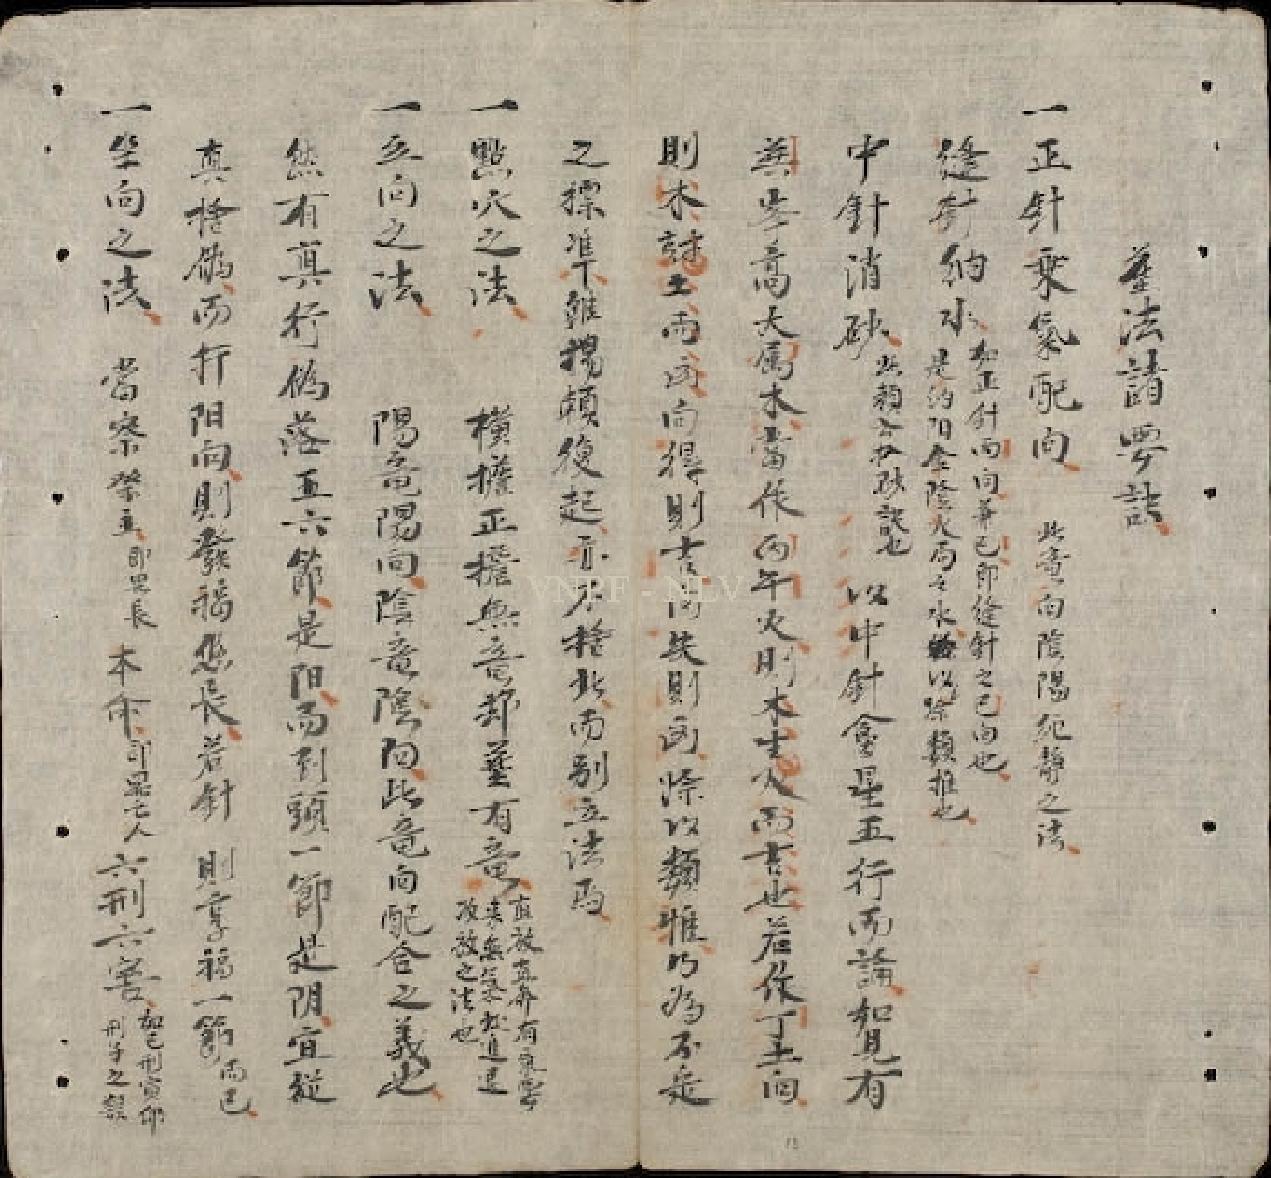 葬法諸要訣
一正針乘氣配向 此竜向陰陽純静之法
縫針納水 如正針丙向兼巳即縫針之巳向也
是納阳金陰火局之水餘以類推也
中針消砂 此賴公切砂訣也 以中針盒星五行而論如見有
葉峯高大属木當作丙午火則木生火而吉也若作丁土向
則木尅土而凶向得則吉向失則凶餘以類推乃為不是
之標準雖楊賴復起亦不捨此而别立法焉
一點穴之法 橫擔正擔無竜却葬有竜 直放直奔有氣要
来無氣於進退
改放之法也
一立向之法 陽竜陽向陰竜陰向此竜向配合之義也
然有真行偽落五六節是阳而到頭一節是阴宜從
真捨偽而扦阳向則發福悠長若針 則享福一節而已
一坐向之法 當察祭主即男長本命即異亡人六刑六害如巳刑寅卯
刑子之類
VNPF - NLV